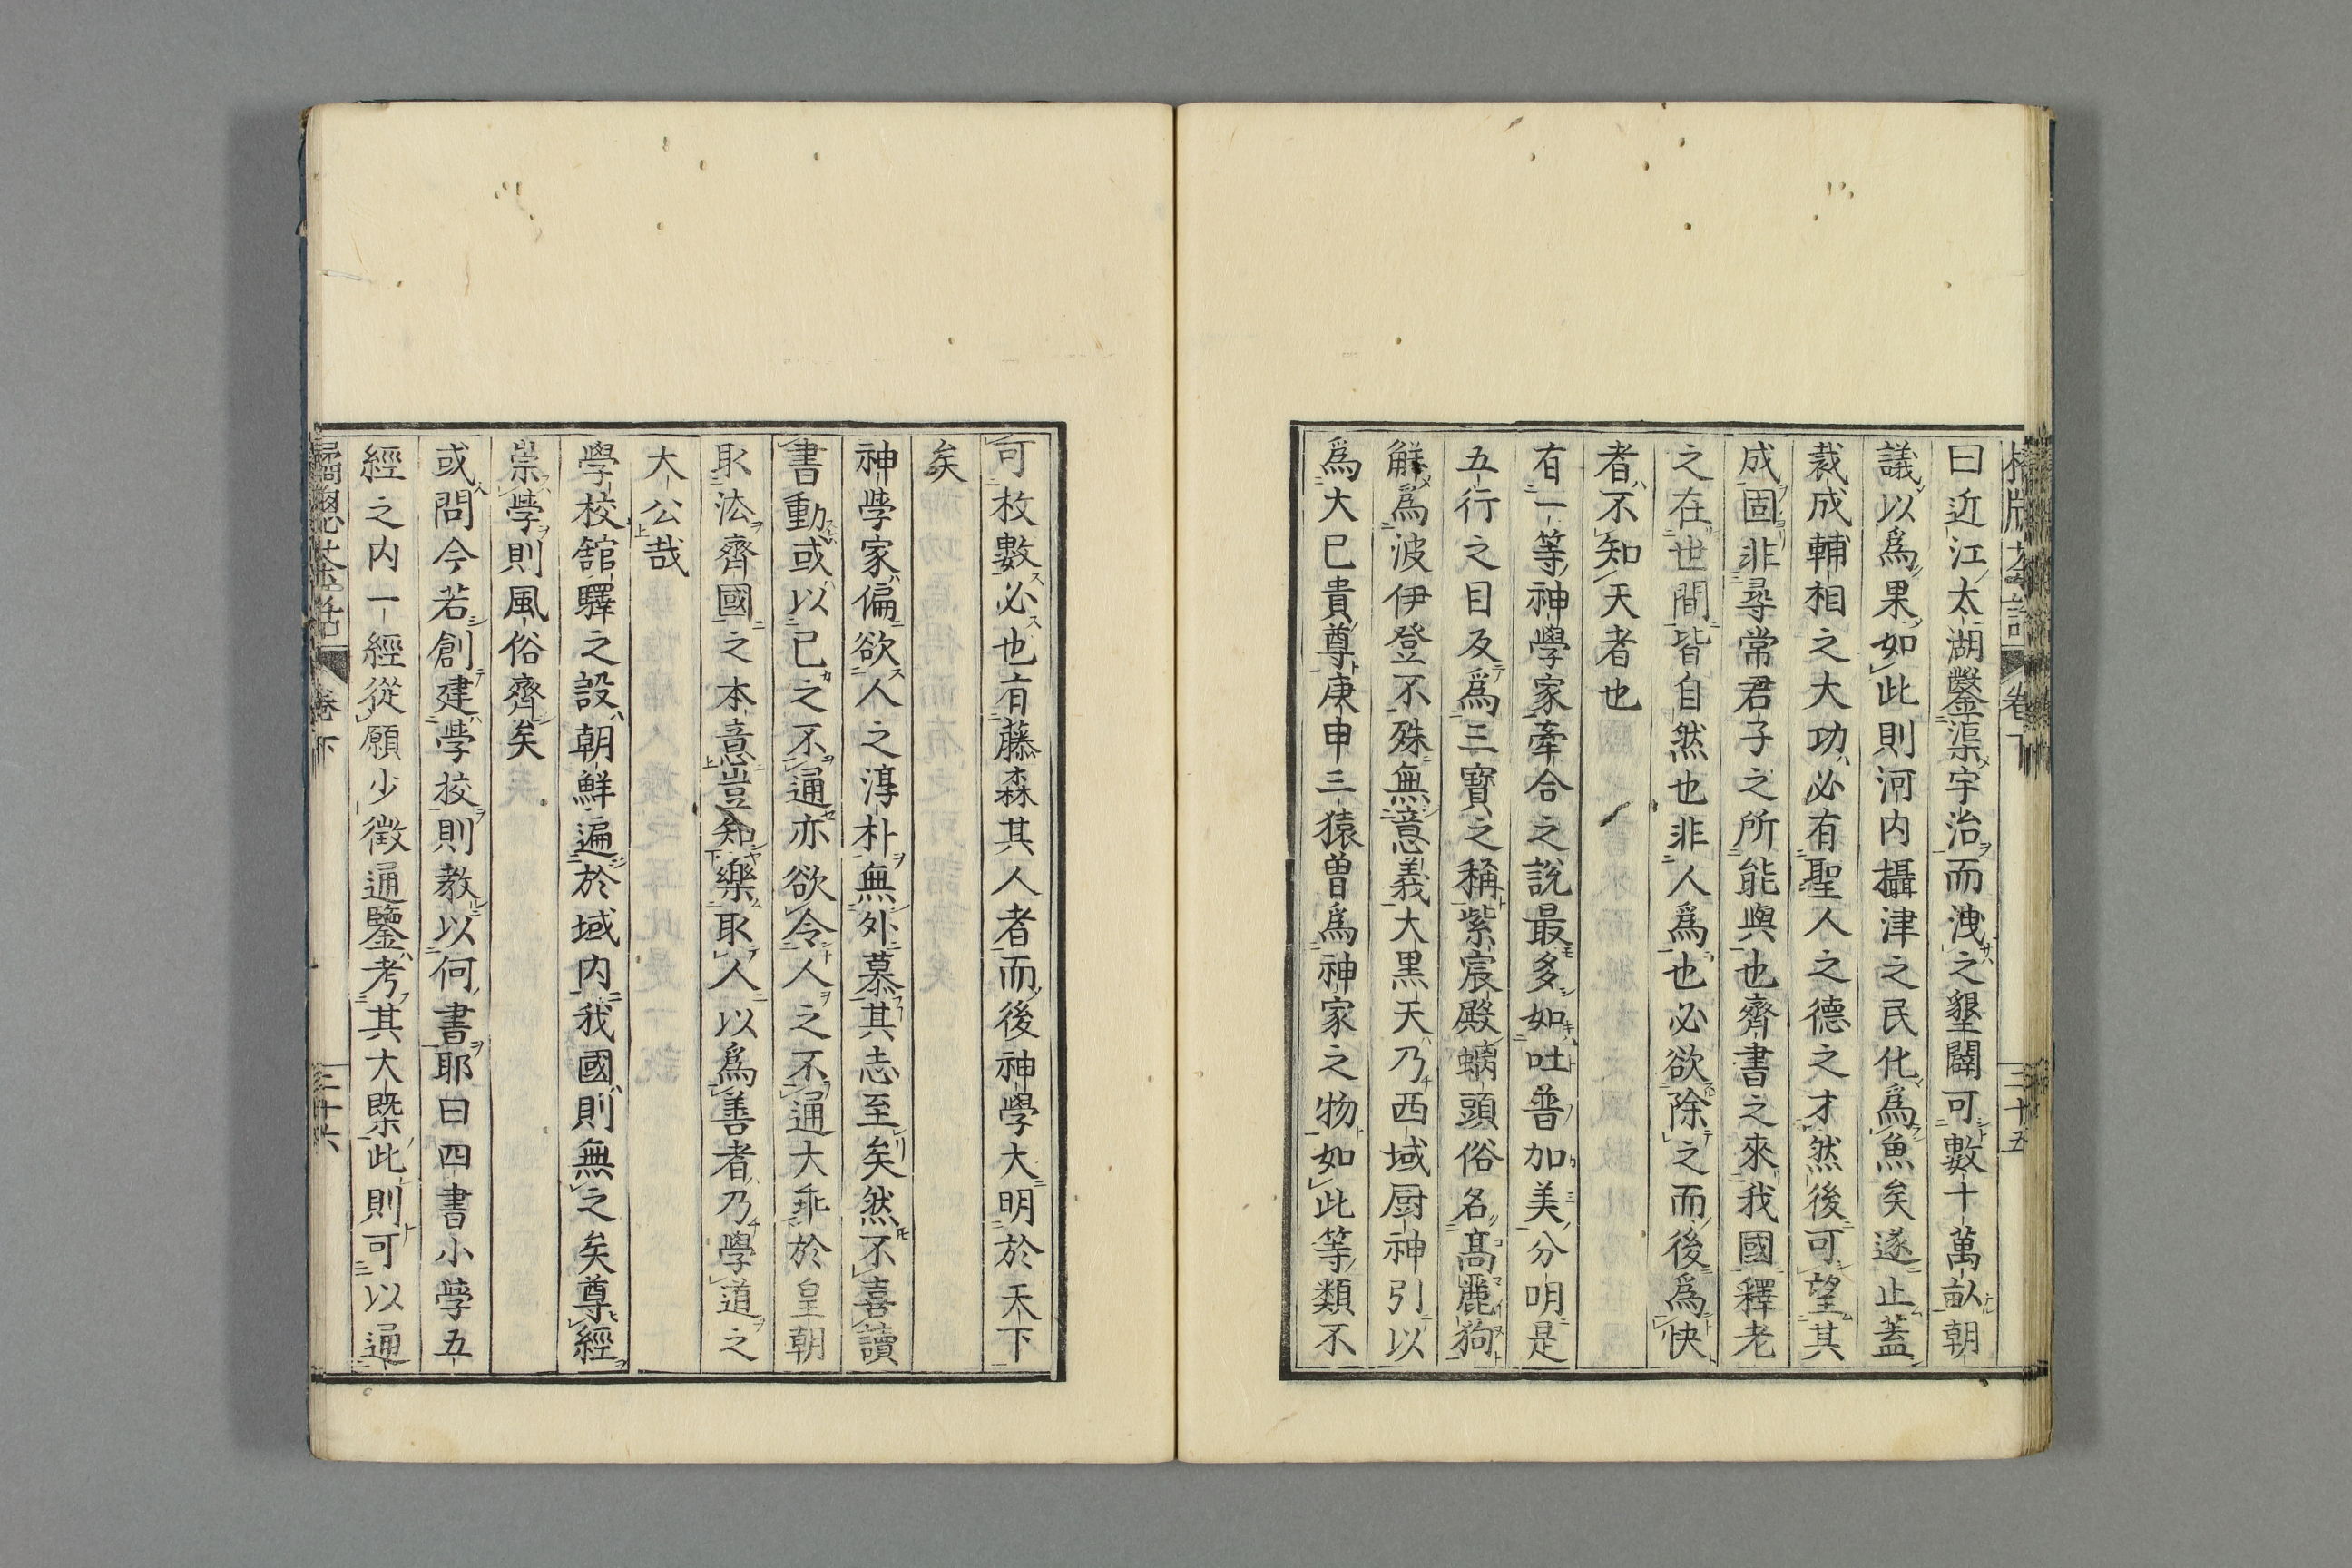 卷下
三十五
曰近江太湖鑿渠宇治而洩之墾闢可數十萬畝朝
議以爲果如此則河内攝津之民化爲魚矣遂止蓋
裁成輔相之大功必有聖人之德之才然後可望其
成固非尋常君子之所能與也齊書之來我國釋老
之在世間皆自然也非人爲也必欲除之而後爲快
者不知天者也
有一等神學家牽合之說最多如吐普加美分明是
五行之目反爲三寶之稱紫宸殿螭頭俗名髙麗狗
觧爲波伊登不殊無意義大黒天乃西域厨神引以
爲大已貴尊庚申三猿曽爲神家之物如此等類不
可枚數必也有藤森其人者而後神學大明於天下
矣
神學家偏欲人之淳朴無外慕其志至矣然不喜讀
書動或以已之不通亦欲令人之不通大乖於皇朝
取法齊國之本意豈知樂取人以爲善者乃學道之
大公哉
學校舘驛之設朝鮮遍於域内我國則無之矣尊經
崇學則風俗齊矣
或問今若創建學校則教以何書耶曰四書小學五
經之内一經從願少徵通鑒考其大槩此則可以通
卷下
三十六